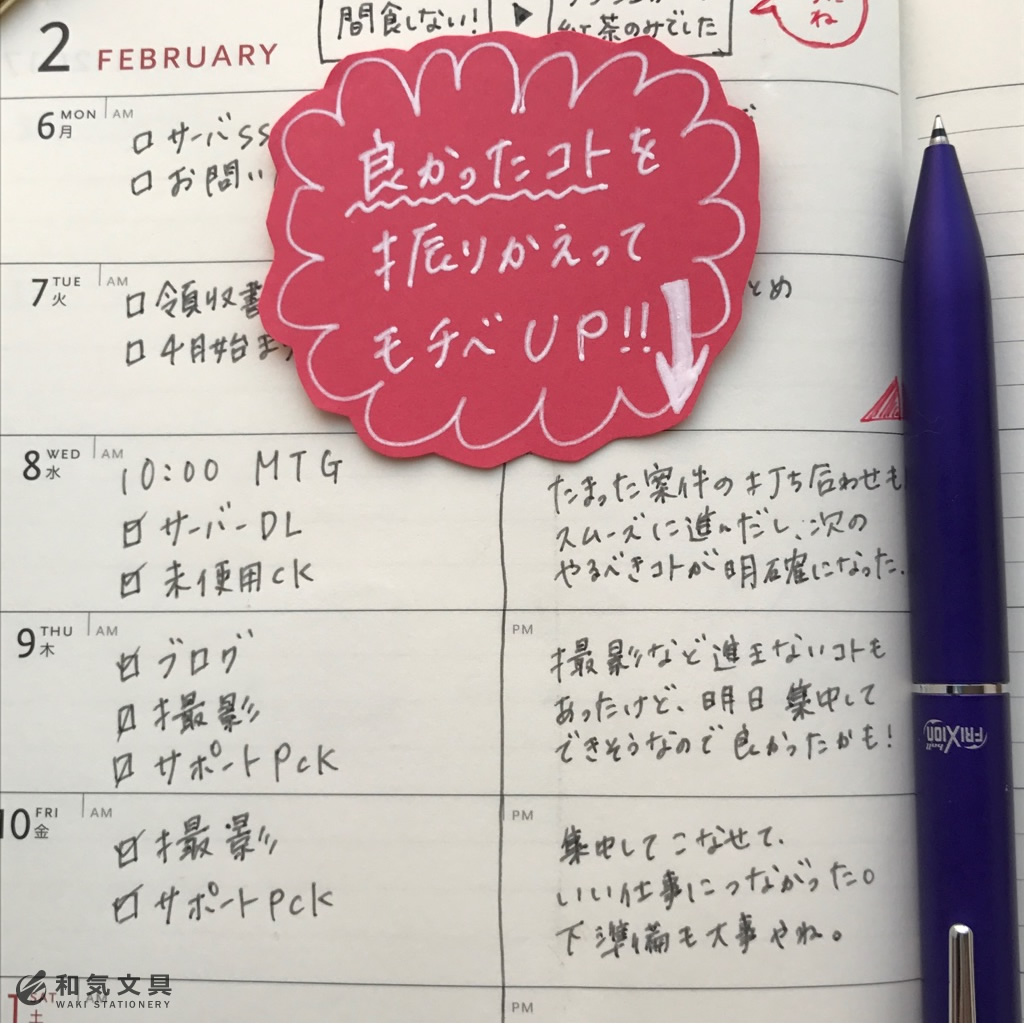 間食しない!
▶
紅茶のみでした
ね
2 FEBRUARY
良かったコトを
振りかえって
モチベUP!!
↓
6 MON 月 AM
□ サーバSS
□ お問い
7 TUE 火 AM
□ 領収書
□ 4月始ま
とめ
8 WED 水 AM
10:00 MTG
☑ サーバーDL
☑ 未使用CK
たまった案件の打ち合わせも
スムーズに進んだし、次の
やるべきコトが明確になった。
9 THU 木 AM
☑ ブログ
☑ 撮影
☑ サポートPCK
PM
撮影など進まないコトも
あったけど、明日集中して
できそうなので良かったかも!
10 FRI 金 AM
☑ 撮影
☑ サポートPCK
PM
集中してこなせて、
いい仕事につながった。
下準備も大事やね。
SAT 土 AM
PM
FRIXION ball
和気文具
WAKI STATIONERY